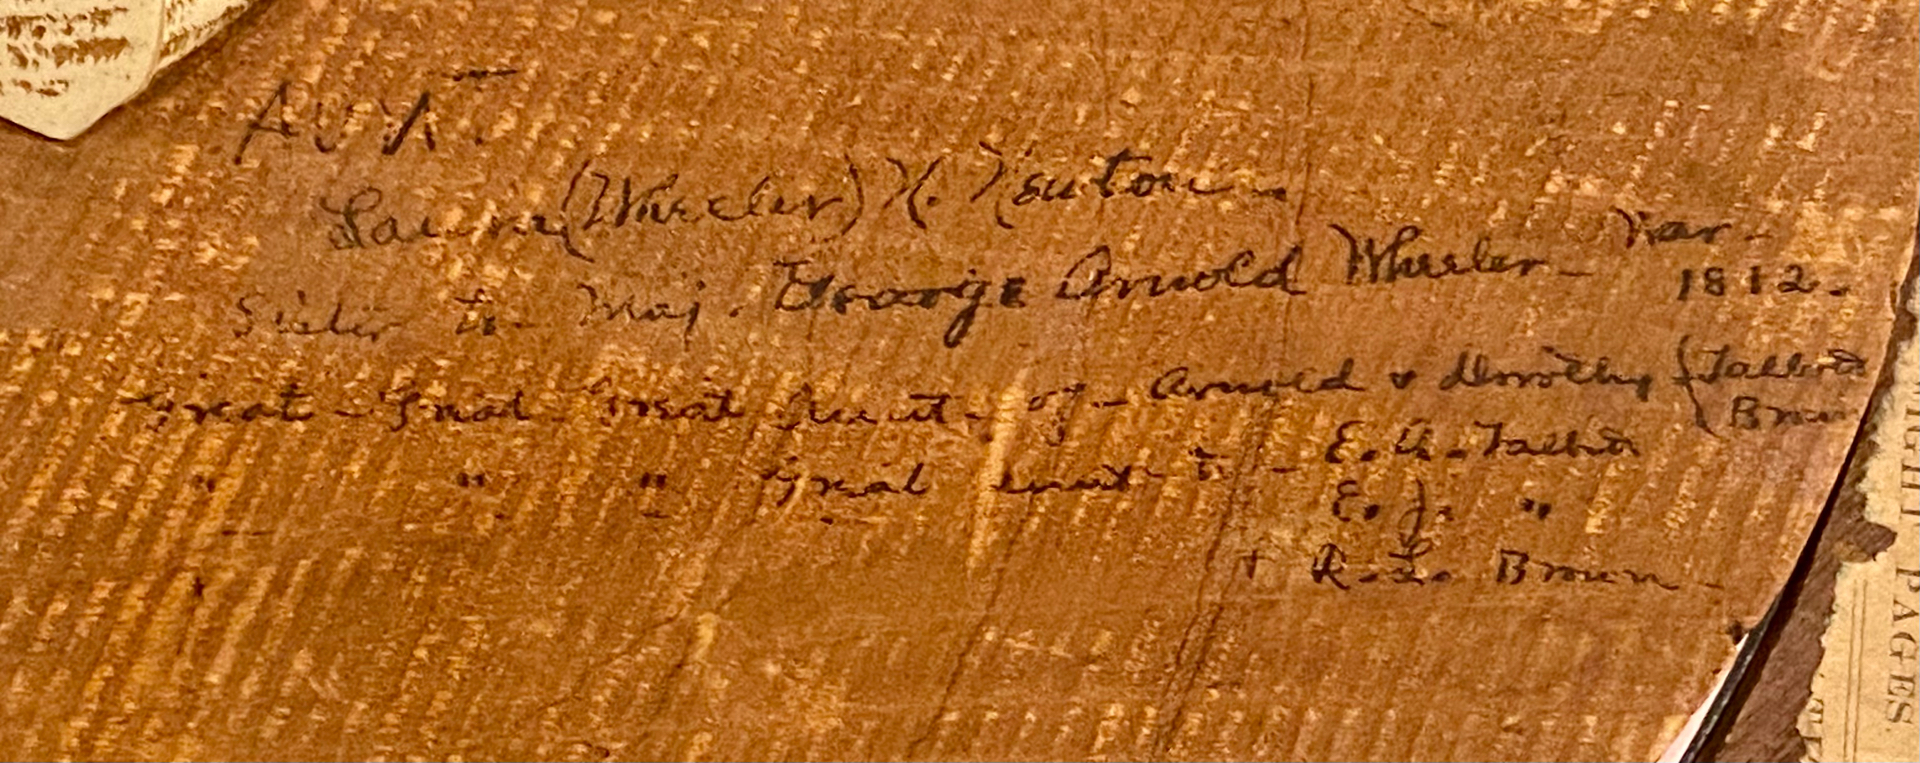 AUNT.
(Wheeler) N. Newton -
Sister to Maj. George Arnold Wheeler - War - 1812.
Great - Great - Great Aunt - of - Arnold & Dorothy (Talbot Brown
" " " Great aunt to - E. A. Talbot
E. J. "
+ R. L. Brown -
IGHT PAGES